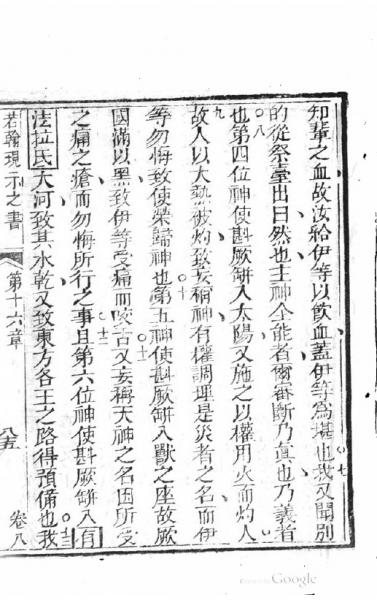 知輩之血故汝給伊等以飲血蓋伊等為堪也我又聞別
的從祭臺出曰然也主神全能者爾審斷乃真也乃義者
也第四位神使斟厥缾入太陽又施之以權用火而灼人
故人以大熱被灼致妄稱神有權調理是災者之名而伊
等勿悔致使榮歸神也第五神使斟厥缾入獸之座故厥
國滿以黑致伊等受痛而咬舌又妄稱天神之名因所受
之痛之瘡而勿悔所行之事且第六位神使斟厥缾入有
法拉氐大河致其水乾又致東方各王之路得預備也我
若翰現示之書 第十六章 八五 卷八
Google